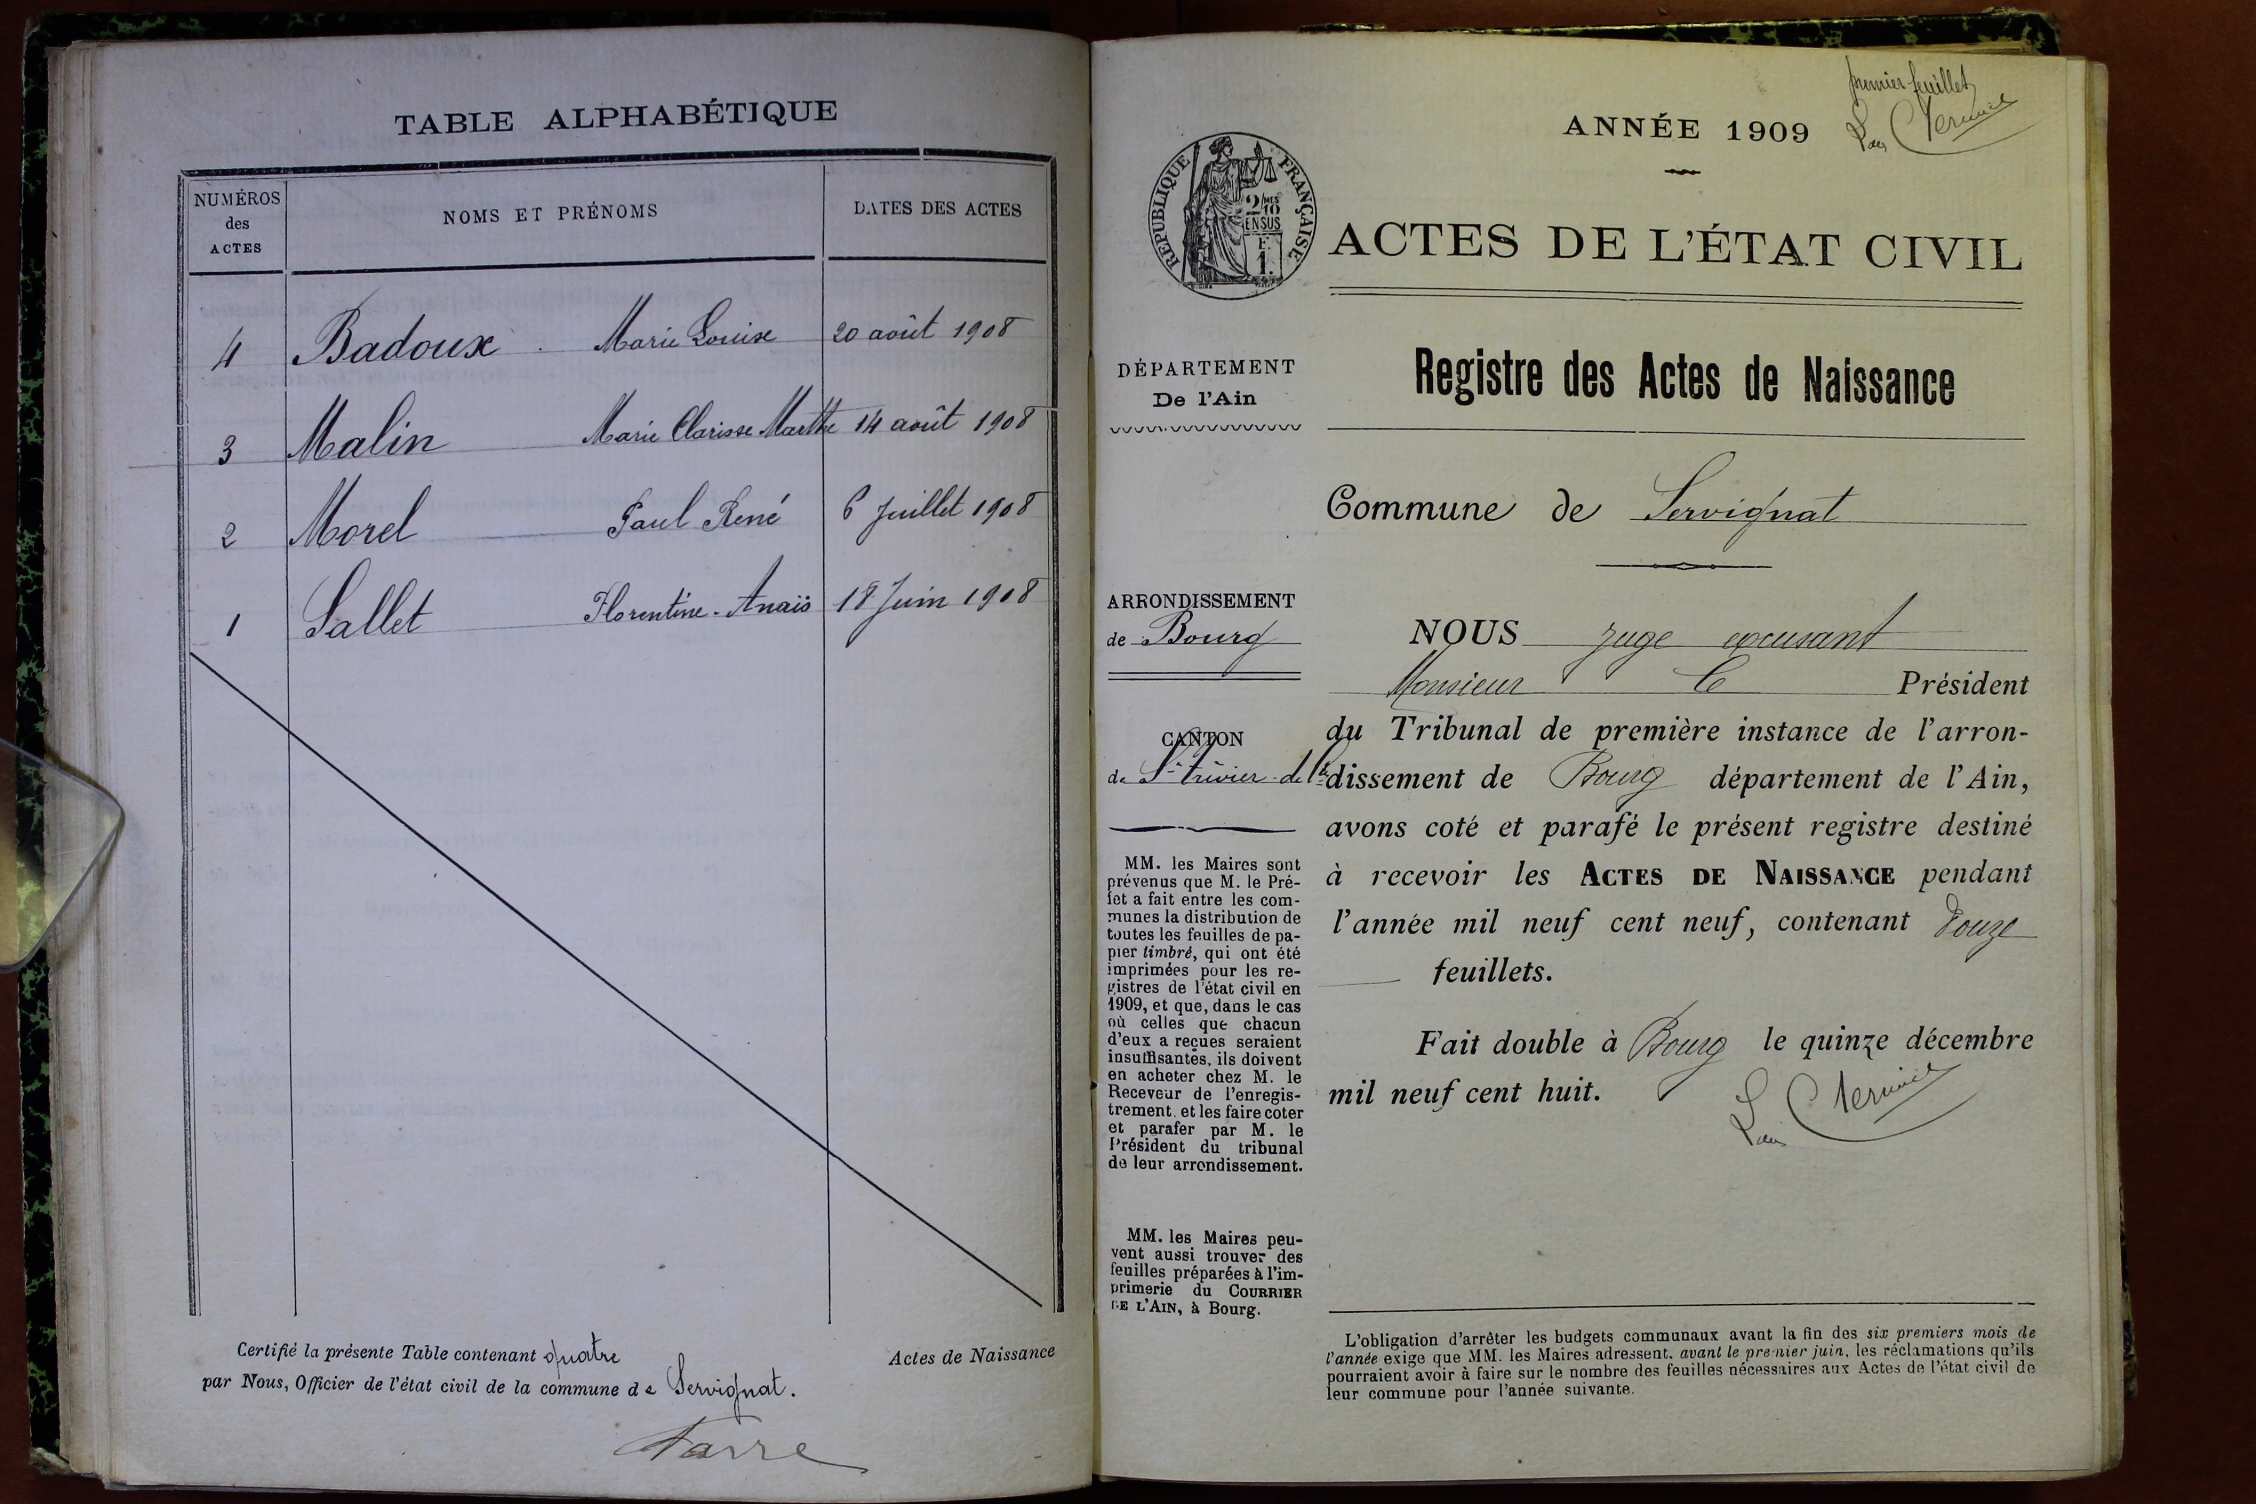 TABLE ALPHABÉTIQUE
NUMÉROS des ACTES
NOMS ET PRÉNOMS
DATES DES ACTES
4 Badoux Marie Louise 20 août 1908
3 Malin Marie Clarisse Marthe 14 août 1908
2 Morel Paul René 6 Juillet 1908
1 Sallet Florentine-Anaïs 18 Juin 1908
Certifié la présente Table contenant quatre
Actes de Naissance
par Nous, Officier de l'état civil de la commune de Servignat.
Farre
premier feuillet
ANNÉE 1909
RÉPUBLIQUE FRANÇAISE
2/10 MES
EN SUS
F.
1.
ACTES DE L'ÉTAT CIVIL
DÉPARTEMENT
De l'Ain
ARRONDISSEMENT
de Bourg
CANTON
de St Trivier-de Ctes
MM. les Maires sont
prévenus que M. le Pré-
fet a fait entre les com-
munes la distribution de
toutes les feuilles de pa-
pier timbré, qui ont été
imprimées pour les re-
gistres de l'état civil en
1909, et que, dans le cas
où celles que chacun
d'eux a reçues seraient
insuffisantes, ils doivent
en acheter chez M. le
Receveur de l'enregis-
trement, et les faire coter
et parafer par M. le
Président du tribunal
de leur arrondissement.
MM. les Maires peu-
vent aussi trouver des
feuilles préparées à l'im-
primerie du COURRIER
DE L'AIN, à Bourg.
Registre des Actes de Naissance
Commune de Servignat
NOUS juge excusant
Monsieur le Président
du Tribunal de première instance de l'arron-
dissement de Bourg département de l'Ain,
avons coté et parafé le présent registre destiné
à recevoir les ACTES DE NAISSANCE pendant
l'année mil neuf cent neuf, contenant douze
feuillets.
Fait double à Bourg le quinze décembre
mil neuf cent huit.
L'obligation d'arrêter les budgets communaux avant la fin des six premiers mois de
l'année exige que MM. les Maires adressent, avant le premier juin, les réclamations qu'ils
pourraient avoir à faire sur le nombre des feuilles nécessaires aux Actes de l'état civil de
leur commune pour l'année suivante.